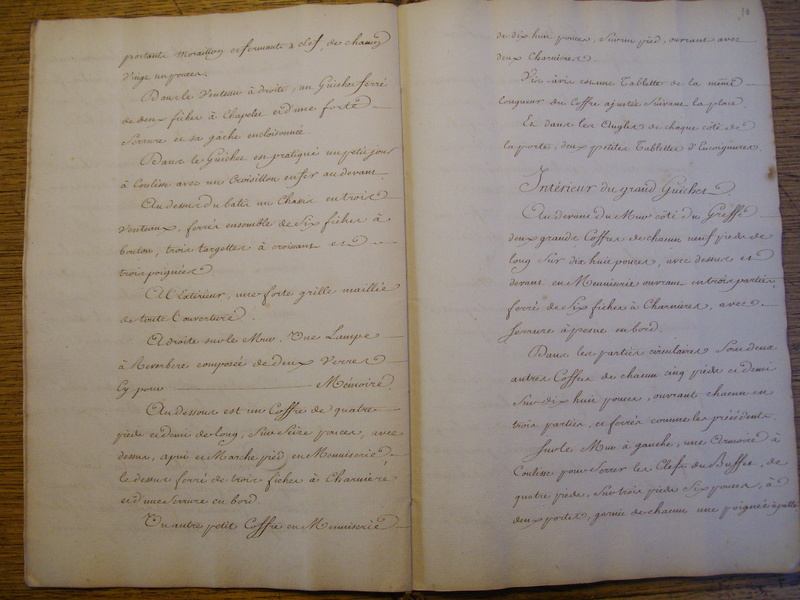 portante moraillon et fermante à clef, de chacun
Vingt un pouces.
Dans le Venteau à droite, un Guichet ferré
de deux fiches à Chapelet et d'une forte
Serrure et sa gâche encloisonnée.
Dans le Guichet est pratiqué un petit jour
à Coulisse avec un Croisillon en fer au devant.
Au dessus du batis un Chassis en trois
Venteaux, ferrés ensemble de Six fiches à
bouton, trois targettes à croissant et
trois poignées
A l'Extérieur, une forte grille maillée
de toute l'ouverture.
A droite sur le Mur, Une Lampe
à Reverbere composée de deux Verres
Cy pour Mémoire.
Au dessous est un Coffre de quatre
pieds et demi de long, Sur Seize pouces, avec
dessus, apui et Marche pied, en Menuiserie
le dessus ferré de trois fiches à Charniere
et d'une Serrure en bord.
Un autre petit Coffre en Menuiserie
10
de dix huit pouces, Sur un pied, ouvrant avec
deux Charnieres.
Vis-àvis est une Tablette de la même
Longueur du Coffre ajustée Suivant la place.
Et dans les Angles de chaque côté de
la porte, deux petites Tablettes d'Encoignures.
Intérieur du grand Guichet
Au devant du Mur côté du Greffe
deux grands Coffres de chacun neuf pieds de
long Sur dix huit pouces, avec dessus et
devant en Menuiserie ouvrant en trois parties,
ferré de Six fiches à Charnieres, avec
Serrure à pesne en bord.
Dans les parties circulaires Sont deux
autres Coffres de chacun cinq pieds et demi
Sur dix huit pouces, ouvrant chacun en
trois parties, et ferrés comme les précédents.
Sur le Mur à gauche, une Armoire à
Coulisse pour Serrer les Clefs du Buffet, de
quatre pieds, Sur trois pieds Six pouces, à
deux portes, garnie de chacun une poignée à patte